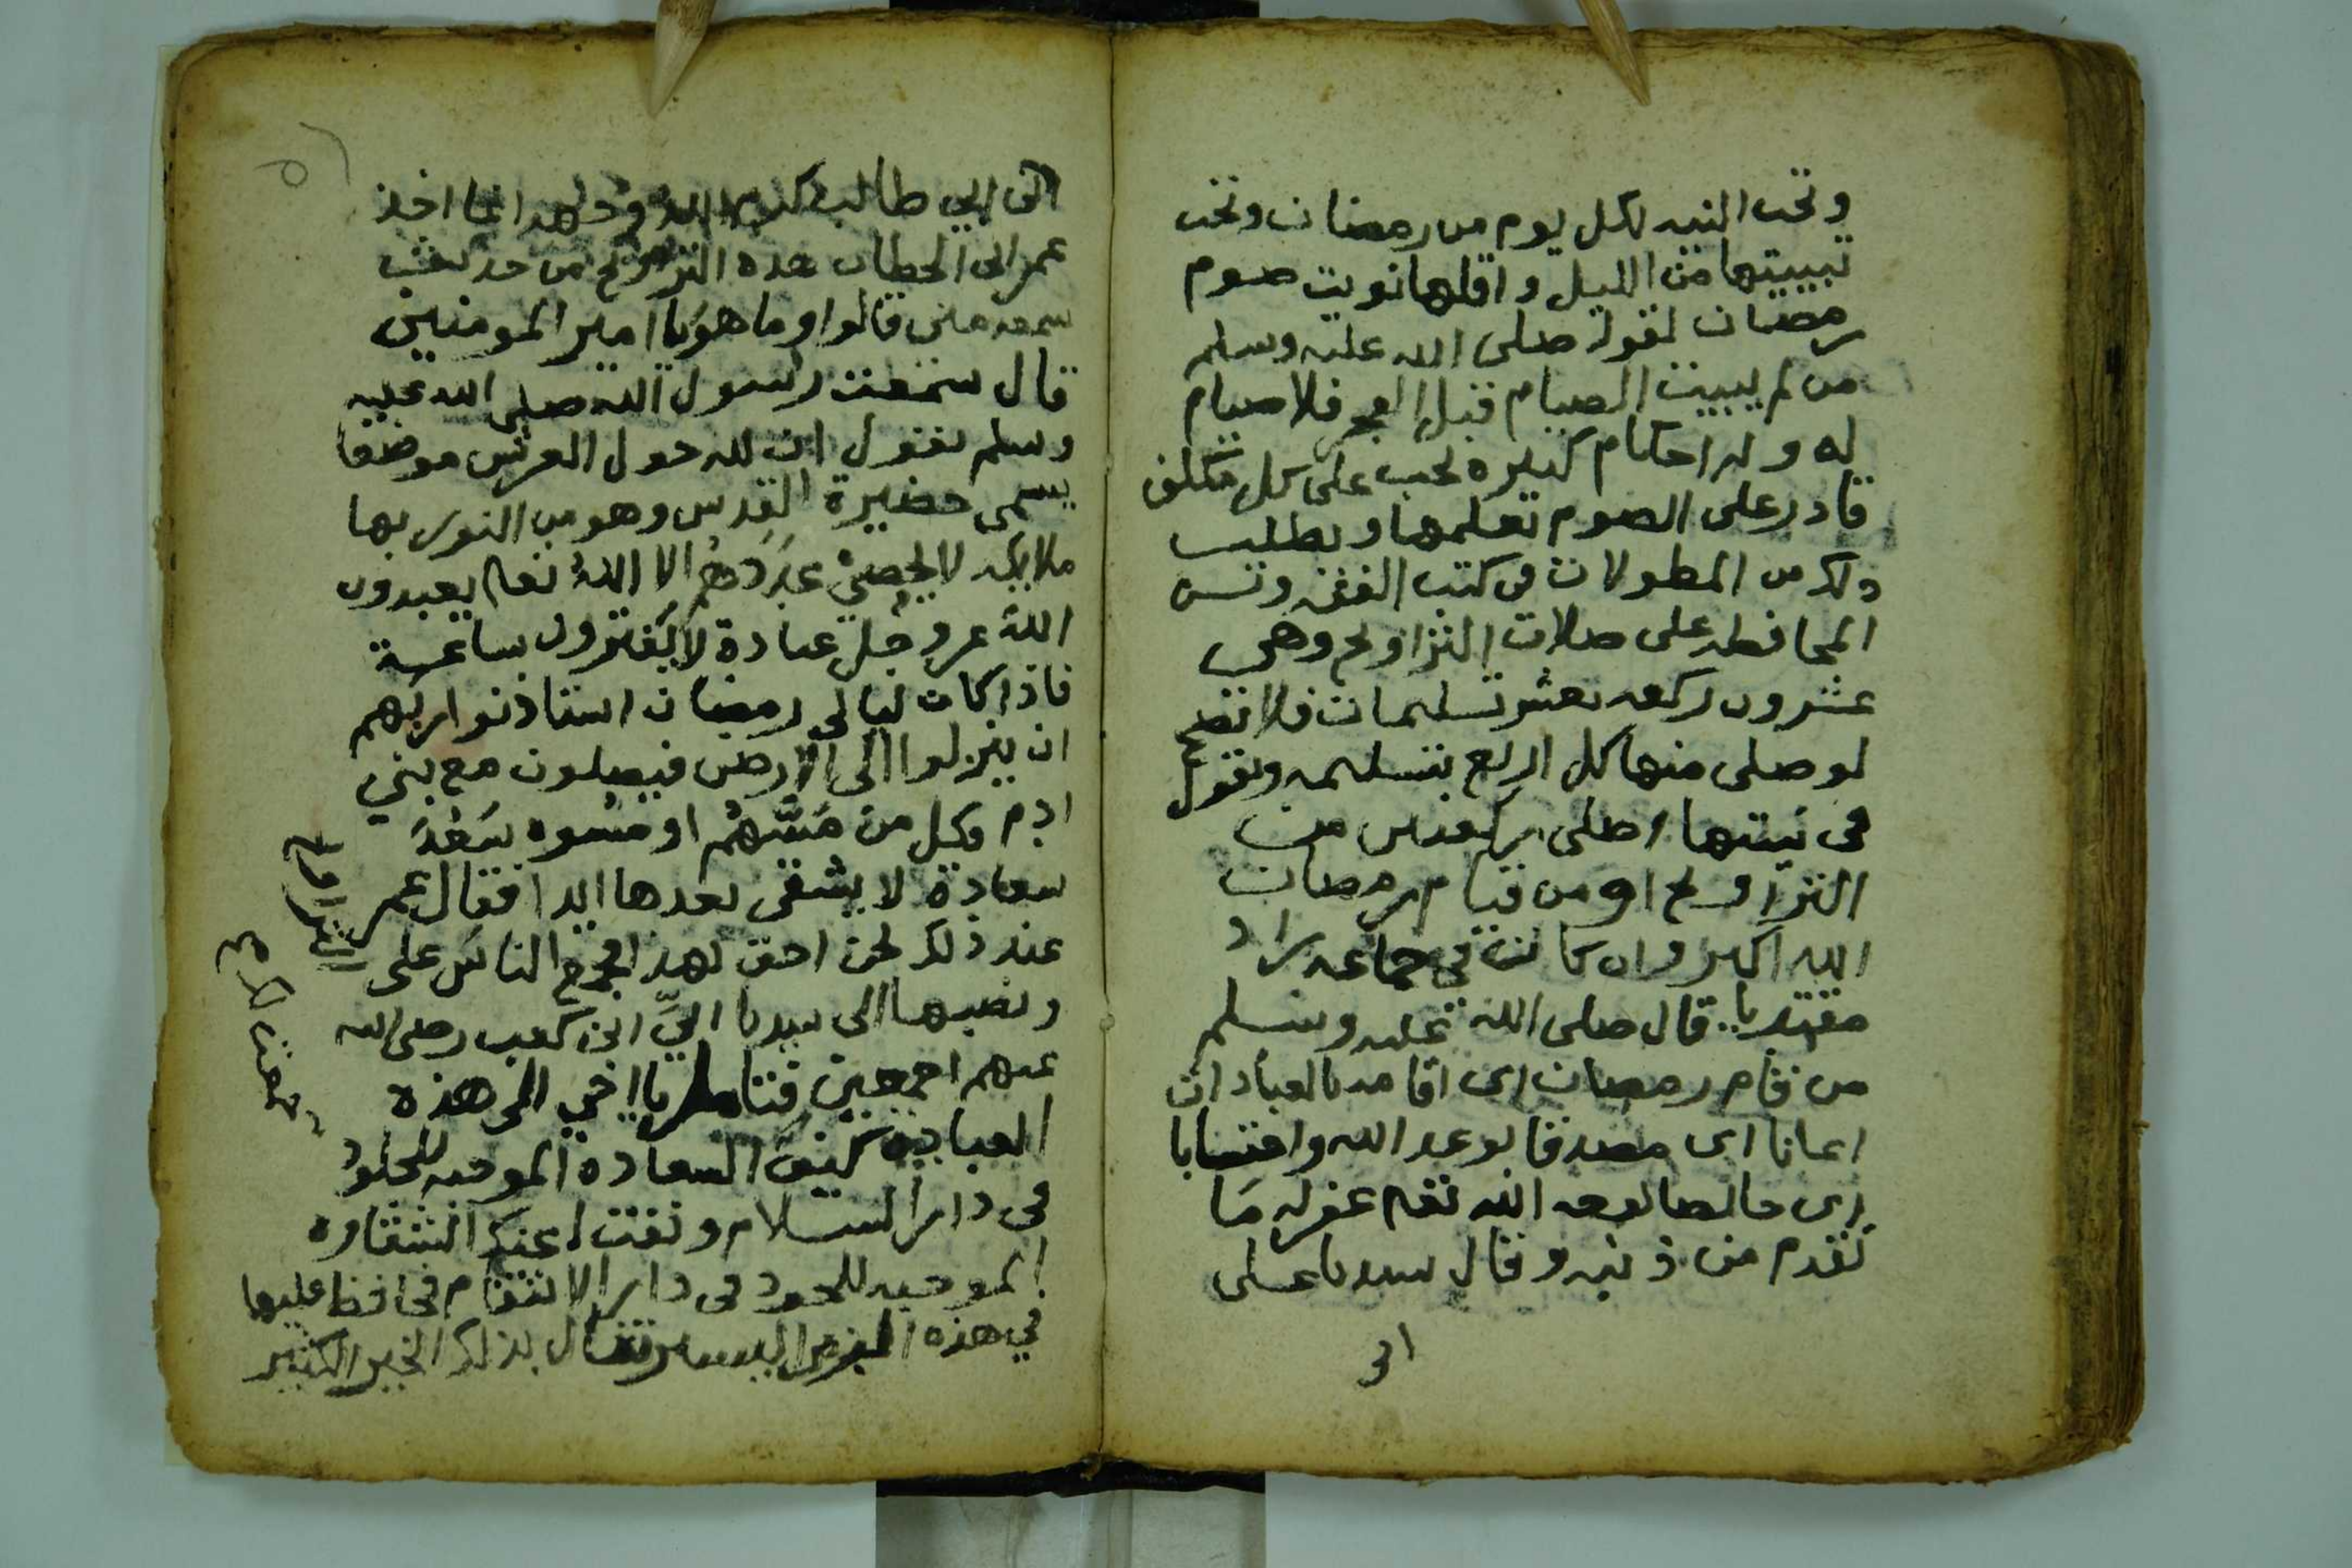 وتجب النيه لكل يوم من رمضان وتجب
تبييتها من الليل واقلها نويت صوم
رمضان لقوله صلى الله عليه وسلم
من لم يبيت الصيام قبل الفجر فلا صيام
له وله احكام كثيره تجب على كل مكلف
قادر على الصوم تعلمها ويطلب
ذلك من المطولات في كتب الفقه وتسن
المحافظه على صلات التراويح وهي
عشرون ركعه بعشر تسليمات فلا تصح
لو صلى منها كل اربع بتسليمه ويقول
في نيتها اصلى ركعتين من
التراويح او من قيام رمضان
الله اكبر وان كانت في جماعه زاد
مقتديا قال صلى الله عليه وسلم
من قام رمضان اى اقامه بالعبادات
ايمانا اى مصدقا بوعد الله واحتسابا
اى خالصا لوجه الله تعالى غفر له ما
تقدم من ذنبه وقال سيدنا على
ابن
ابن ابي طالب كرم الله وجهه انما اخذ
عمر ابن الخطاب هذه التراويح من حديث
سمعه مني قالوا وما هو يا امير المومنين
قال سمعت رسول الله صلى الله عليه
وسلم يقول ان لله حول العرش موضعا
يسمى حضيرة القدس وهو من النور بها
ملايكه لا يحصي عددهم الا الله تعالى يعبدون
الله عز وجل عبادة لا يفترون ساعة
فاذا كان ليالي رمضان استاذنوا ربهم
ان ينزلوا الى الارض فيصلون مع بني
ادم وكل من مسهم او مسوه سعد
سعادة لا يشقى بعدها ابدا فقال عمر
عند ذلك نحن احق بهذا فجمع الناس على
التراويح
ونصبها الى سيدنا ابيّ ابن كعب رضي الله
عنهم اجمعين فتامل يا اخي الى هذه
العباده كيف السعاده الموجبه للخلود
في دار السلام ونفت عنك الشقاوه
الموجبه للخلود في دار الانتقام فحافظ عليها
في هذه اليسير تنال بذلك الخير الكثير